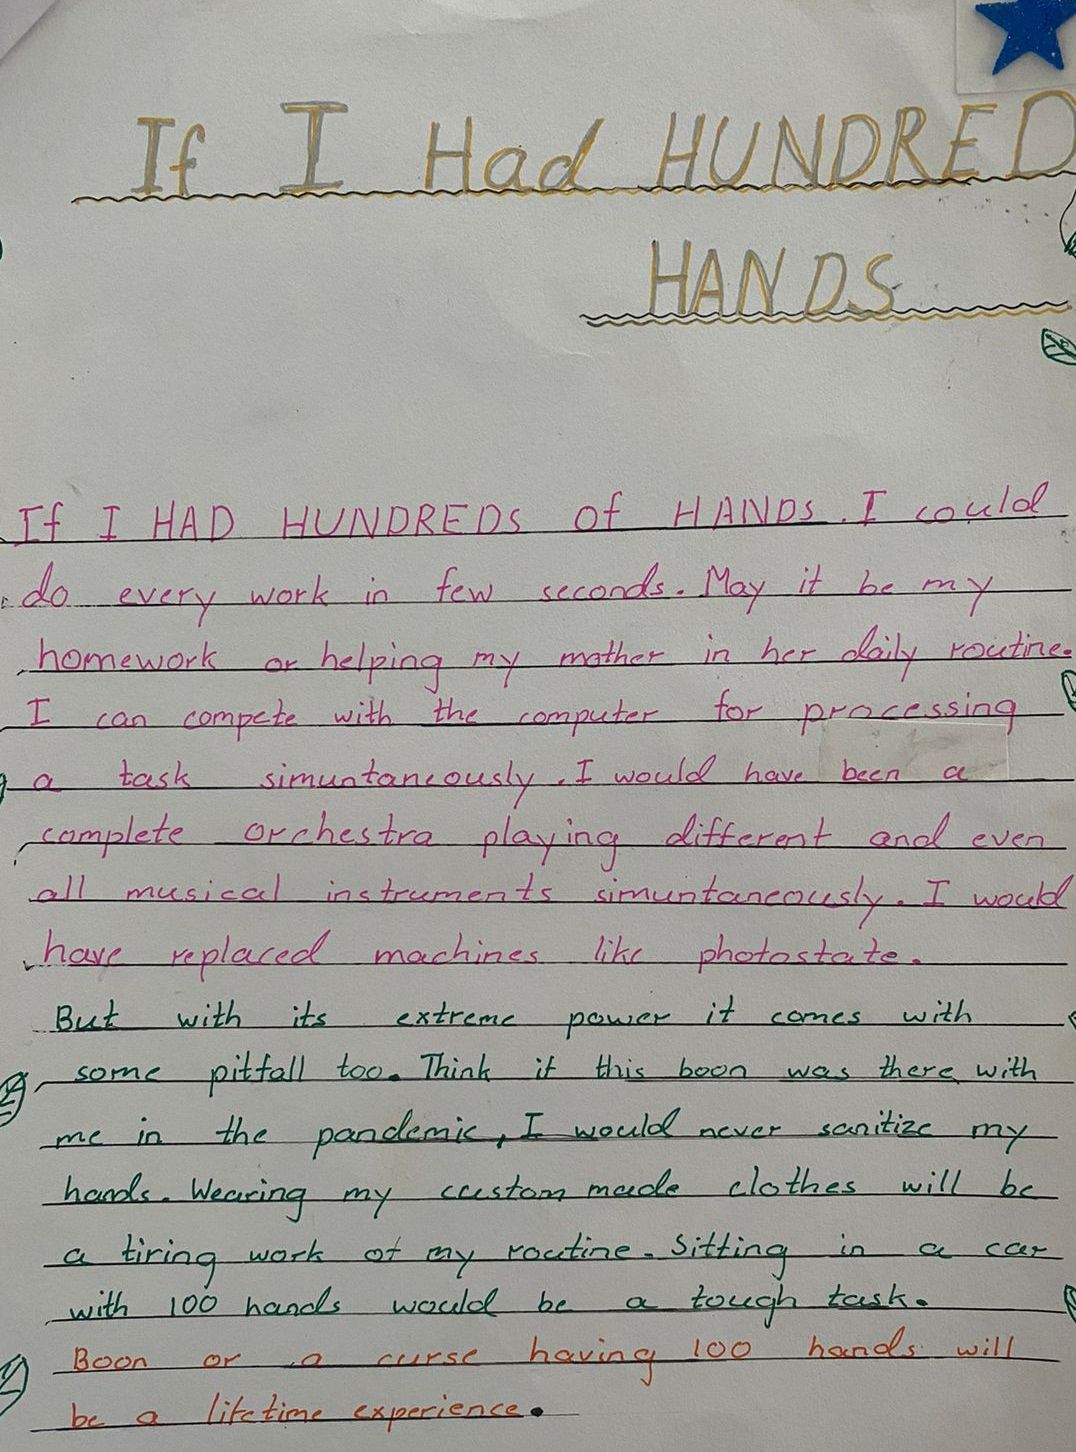 If I Had HUNDRED
HANDS
If I HAD HUNDREDS of HANDS. I could
do every work in few seconds. May it be my
homework or helping my mother in her daily routine.
I can compete with the computer for processing
a task simuntaneously. I would have been a
complete orchestra playing different and even
all musical instruments simuntaneously. I would
have replaced machines like photostate.
But with its extreme power it comes with
some pitfall too. Think if this boon was there with
me in the pandemic, I would never sanitize my
hands. Wearing my custom made clothes will be
a tiring work of my routine. Sitting in a car
with 100 hands would be a tough task.
Boon or a curse having 100 hands will
be a lifetime experience.